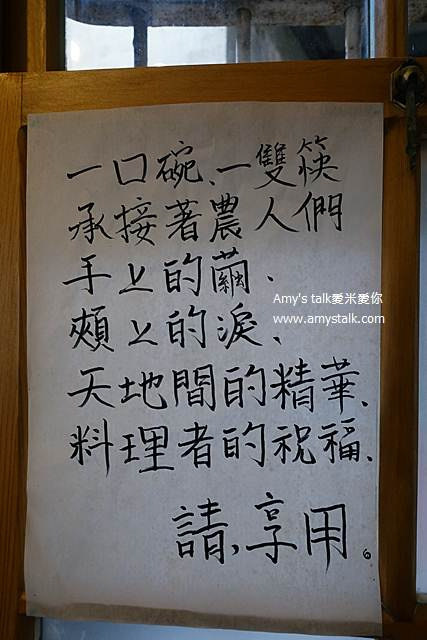 一口碗、一雙筷
承接著農人們
手上的繭、
頰上的淚、
天地間的精華、
料理者的祝福、
請,享用。
Amy's talk愛米愛你
www.amystalk.com